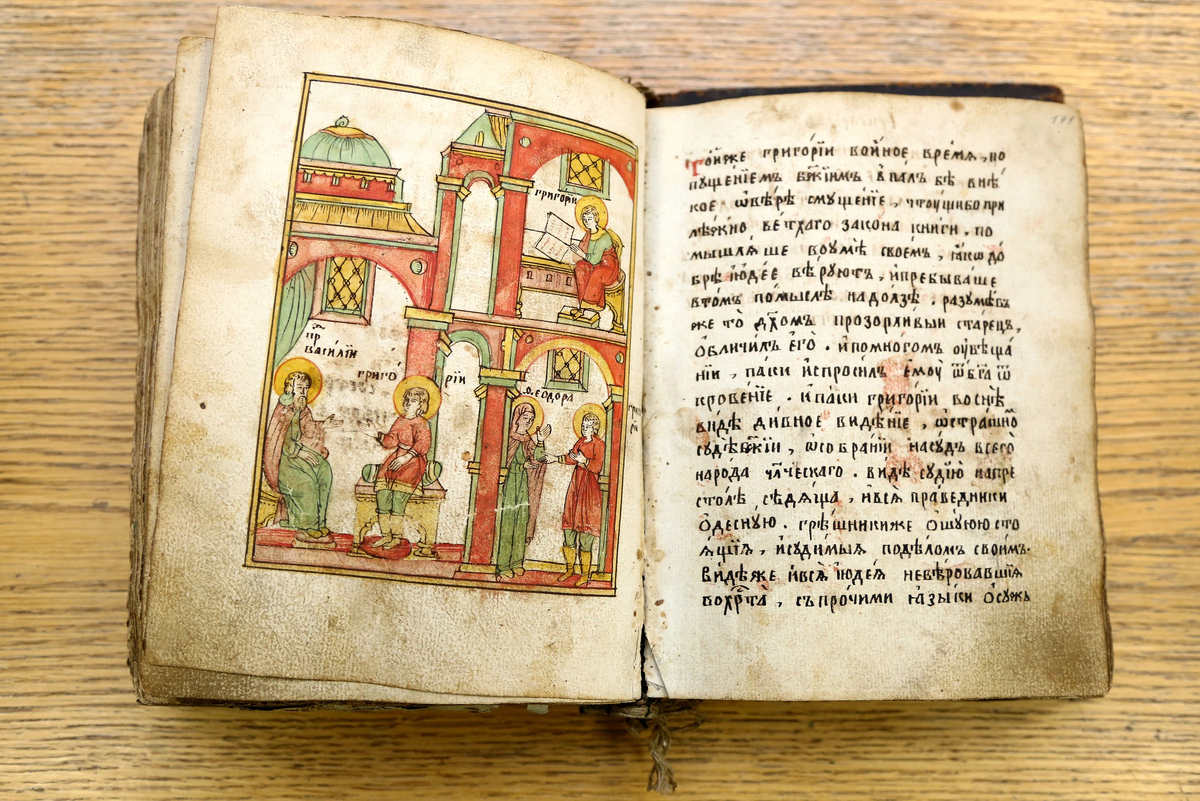 григорїи
пр
василїи
григо
рїи
ѳеодора
Тойже григорїи войное время, по
пущенїемъ бж҃їимъ впалъ бѣ внѣ
кое ѡвѣрѣ смущенїе, чтоу̀шибо при
лѣжно ветхаго закона книги, по
мышляше воумѣ своемъ, ꙗкѡ до
брѣ їюдее вѣруютъ, ипребываше
втомъ помыслѣ надолзѣ, разумѣвъ
же то дх҃омъ прозорливыи старецъ,
ѡбличилъ его. ипомногомъ оувѣща
нїи, паки испросилъ емоу ѿбг҃а ѿ
кровенїе. ипаки григорїи воснѣ
видѣ дивное видѣнїе, ѡстрашнѡ
судѣбж҃їи, ѡсобранїи насудъ всего
народа чл҃ческаго. видѣ судїю напре
столѣ сѣдяща, ився праведники
ѡдесную. грѣшникиже ошуюю сто
ящїя, исудимыя подѣломъ своимъ.
видѣже ився їюдея невѣровавшїя
вохрⷭ҇та, съпрочими языки осужь